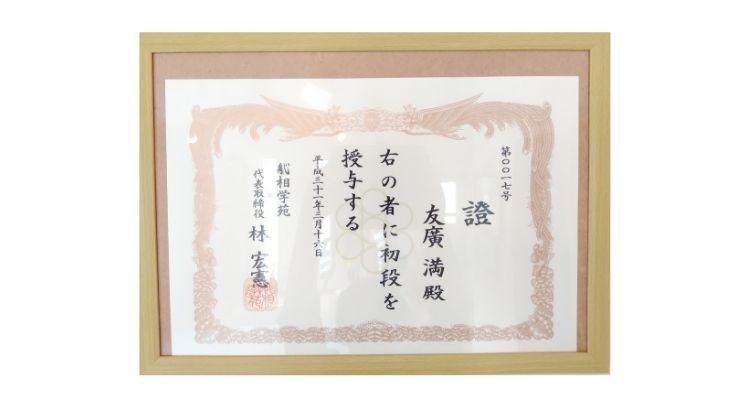 第〇〇一七号
證
友廣 満 殿
右の者に初段を
授与する
平成三十一年三月十六日
相学苑
代表取締役 林 宏憲